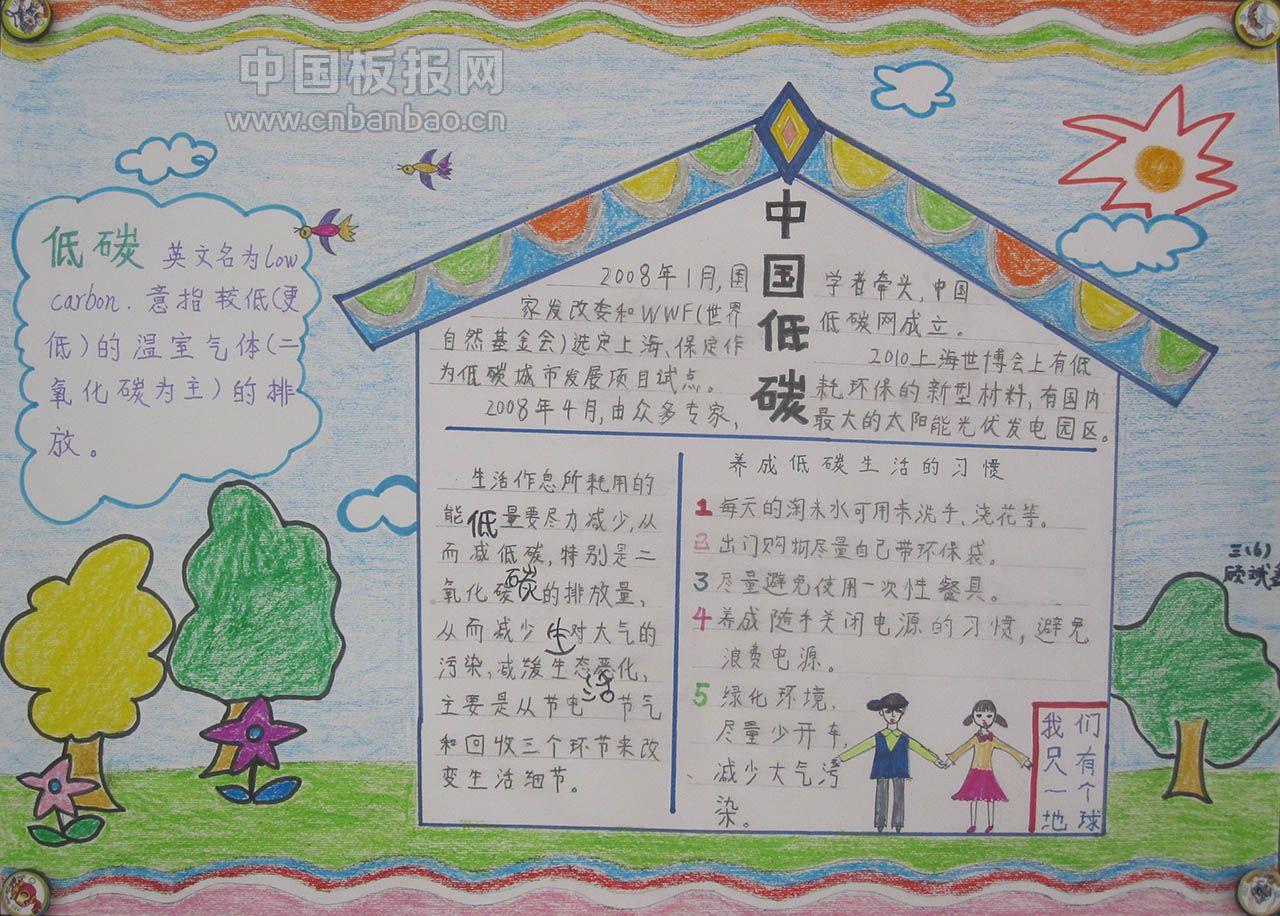 中国板报网
www.cnbanbao.cn
低碳 英文名为low
carbon. 意指较低(更
低)的温室气体(二
氧化碳为主)的排
放。
中国低碳
2008年1月,国
家发改委和WWF(世界
自然基金会)选定上海、保定作
为低碳城市发展项目试点。
2008年4月,由众多专家,
学者牵头,中国
低碳网成立。
2010上海世博会上有低
耗环保的新型材料,有国内
最大的太阳能光伏发电园区。
低碳生活
生活作息所耗用的
能量要尽力减少,从
而减低碳,特别是二
氧化碳的排放量,
从而减少对大气的
污染,减缓生态恶化,
主要是从节电节气
和回收三个环节来改
变生活细节。
养成低碳生活的习惯
1 每天的淘米水可用来洗手、浇花等。
2 出门购物尽量自己带环保袋。
3 尽量避免使用一次性餐具。
4 养成随手关闭电源的习惯,避免
浪费电源。
5 绿化环境,
尽量少开车,
减少大气污
染。
我们
只有
一个
地球
三(6)